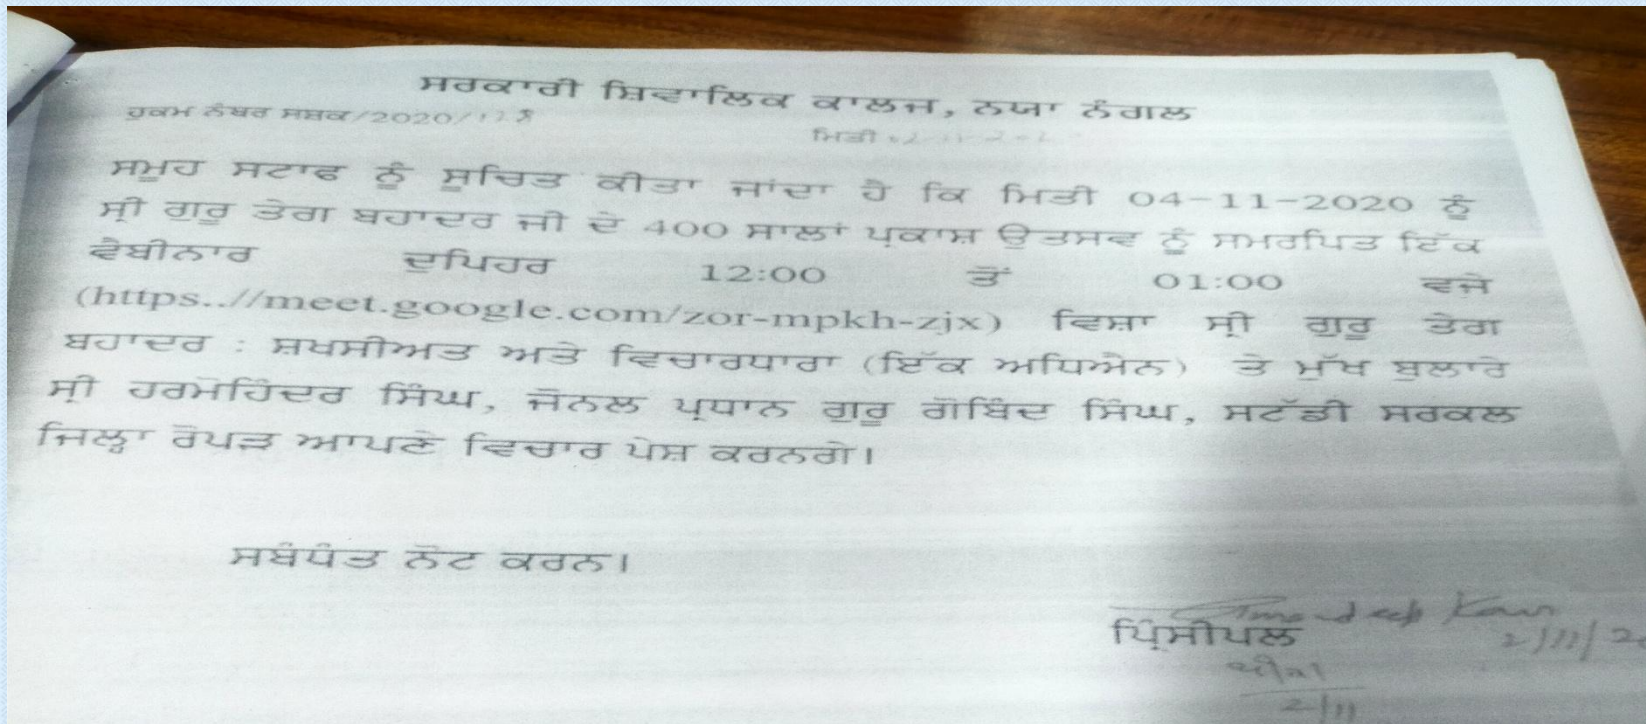 ਸਰਕਾਰੀ ਸ਼ਿਵਾਲਿਕ ਕਾਲਜ, ਨਯਾ ਨੰਗਲ
ਹੁਕਮ ਨੰਬਰ ਸਸ਼ਕ/2020/128
ਮਿਤੀ
ਸਮੂਹ ਸਟਾਫ ਨੂੰ ਸੂਚਿਤ ਕੀਤਾ ਜਾਂਦਾ ਹੈ ਕਿ ਮਿਤੀ 04-11-2020 ਨੂੰ
ਸ੍ਰੀ ਗੁਰੂ ਤੇਗ ਬਹਾਦਰ ਜੀ ਦੇ 400 ਸਾਲਾਂ ਪ੍ਰਕਾਸ਼ ਉਤਸਵ ਨੂੰ ਸਮਰਪਿਤ ਇੱਕ
ਵੈਬੀਨਾਰ ਦੁਪਿਹਰ 12:00 ਤੋਂ 01:00 ਵਜੇ
(https..//meet.google.com/zor-mpkh-zjx) ਵਿਸ਼ਾ ਸ੍ਰੀ ਗੁਰੂ ਤੇਗ
ਬਹਾਦਰ : ਸ਼ਖਸੀਅਤ ਅਤੇ ਵਿਚਾਰਧਾਰਾ (ਇੱਕ ਅਧਿਐਨ) ਤੇ ਮੁੱਖ ਬੁਲਾਰੇ
ਸ੍ਰੀ ਹਰਮੋਹਿੰਦਰ ਸਿੰਘ, ਜੋਨਲ ਪ੍ਰਧਾਨ ਗੁਰੂ ਗੋਬਿੰਦ ਸਿੰਘ, ਸਟੱਡੀ ਸਰਕਲ
ਜਿਲ੍ਹਾ ਰੋਪੜ ਆਪਣੇ ਵਿਚਾਰ ਪੇਸ਼ ਕਰਨਗੇ।
ਸਬੰਧੰਤ ਨੋਟ ਕਰਨ।
Amandeep Kaur
ਪ੍ਰਿੰਸੀਪਲ
2/11/2
2/11